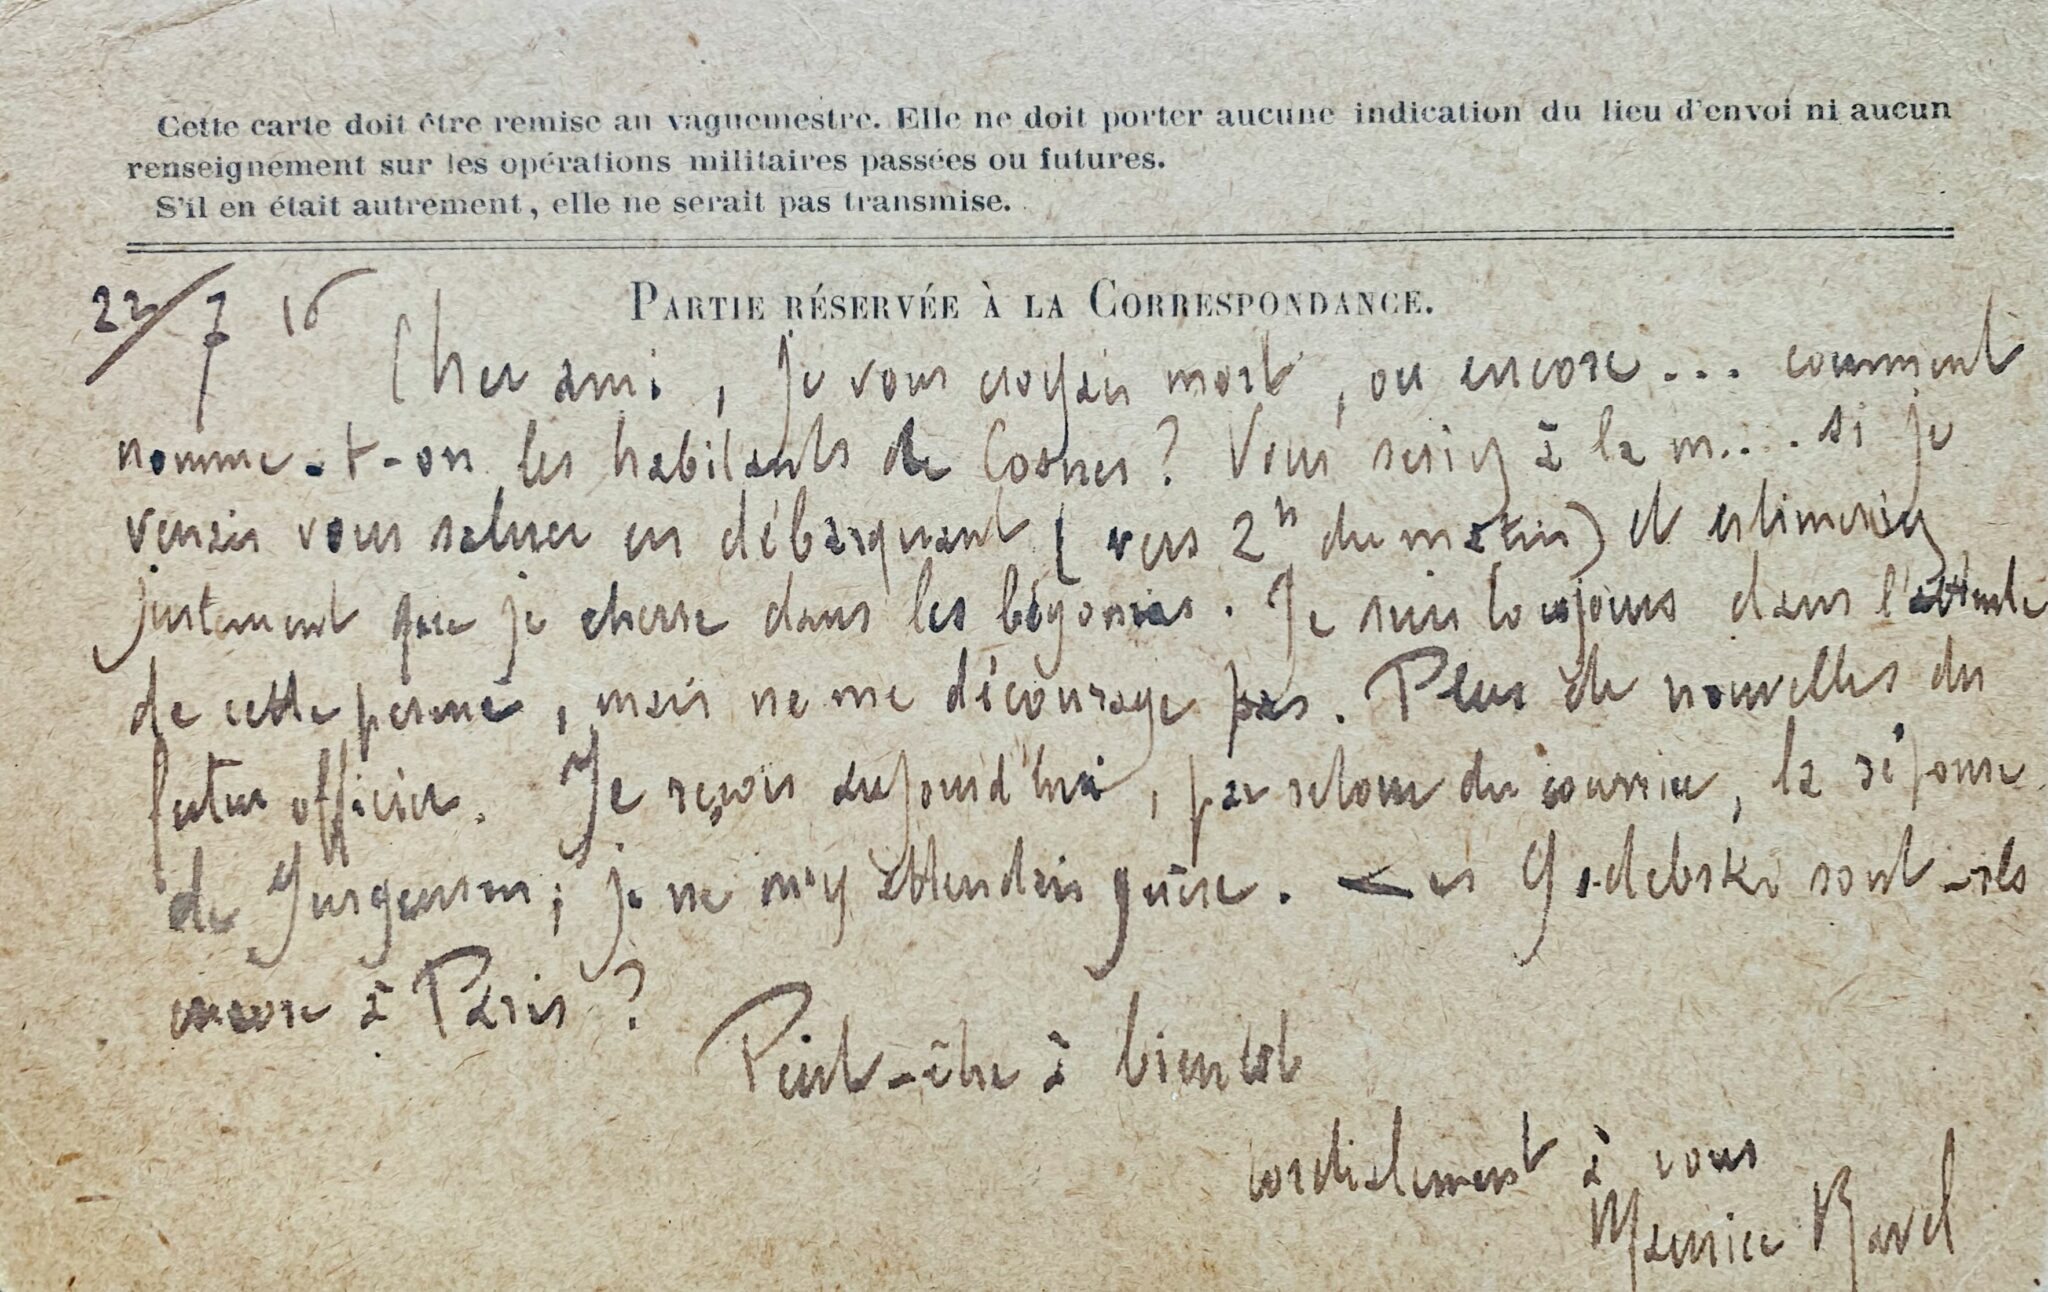 Cette carte doit être remise au vaguemestre. Elle ne doit porter aucune indication du lieu d'envoi ni aucun
renseignement sur les opérations militaires passées ou futures.
S'il en était autrement, elle ne serait pas transmise.
PARTIE RÉSERVÉE À LA CORRESPONDANCE.
22/7 16
Cher ami, je vous croyais mort, ou encore... comment
nomme-t-on les habitants de Cosnes? Vous seriez à la m.... si je
venais vous saluer en débarquant (vers 2h du matin) et estimeriez
justement que je cherre dans les bégonias. Je suis toujours dans l'attente
de cette perme, mais ne me décourage pas. Plus de nouvelles du
futur officier. Je reçois aujourd'hui, par retour du courrier, la réponse
de Jurgenson; je ne m'y attendais guère. Les Godebski sont-ils
encore à Paris?
Peut-être à bientôt
cordialement à vous
Maurice Ravel